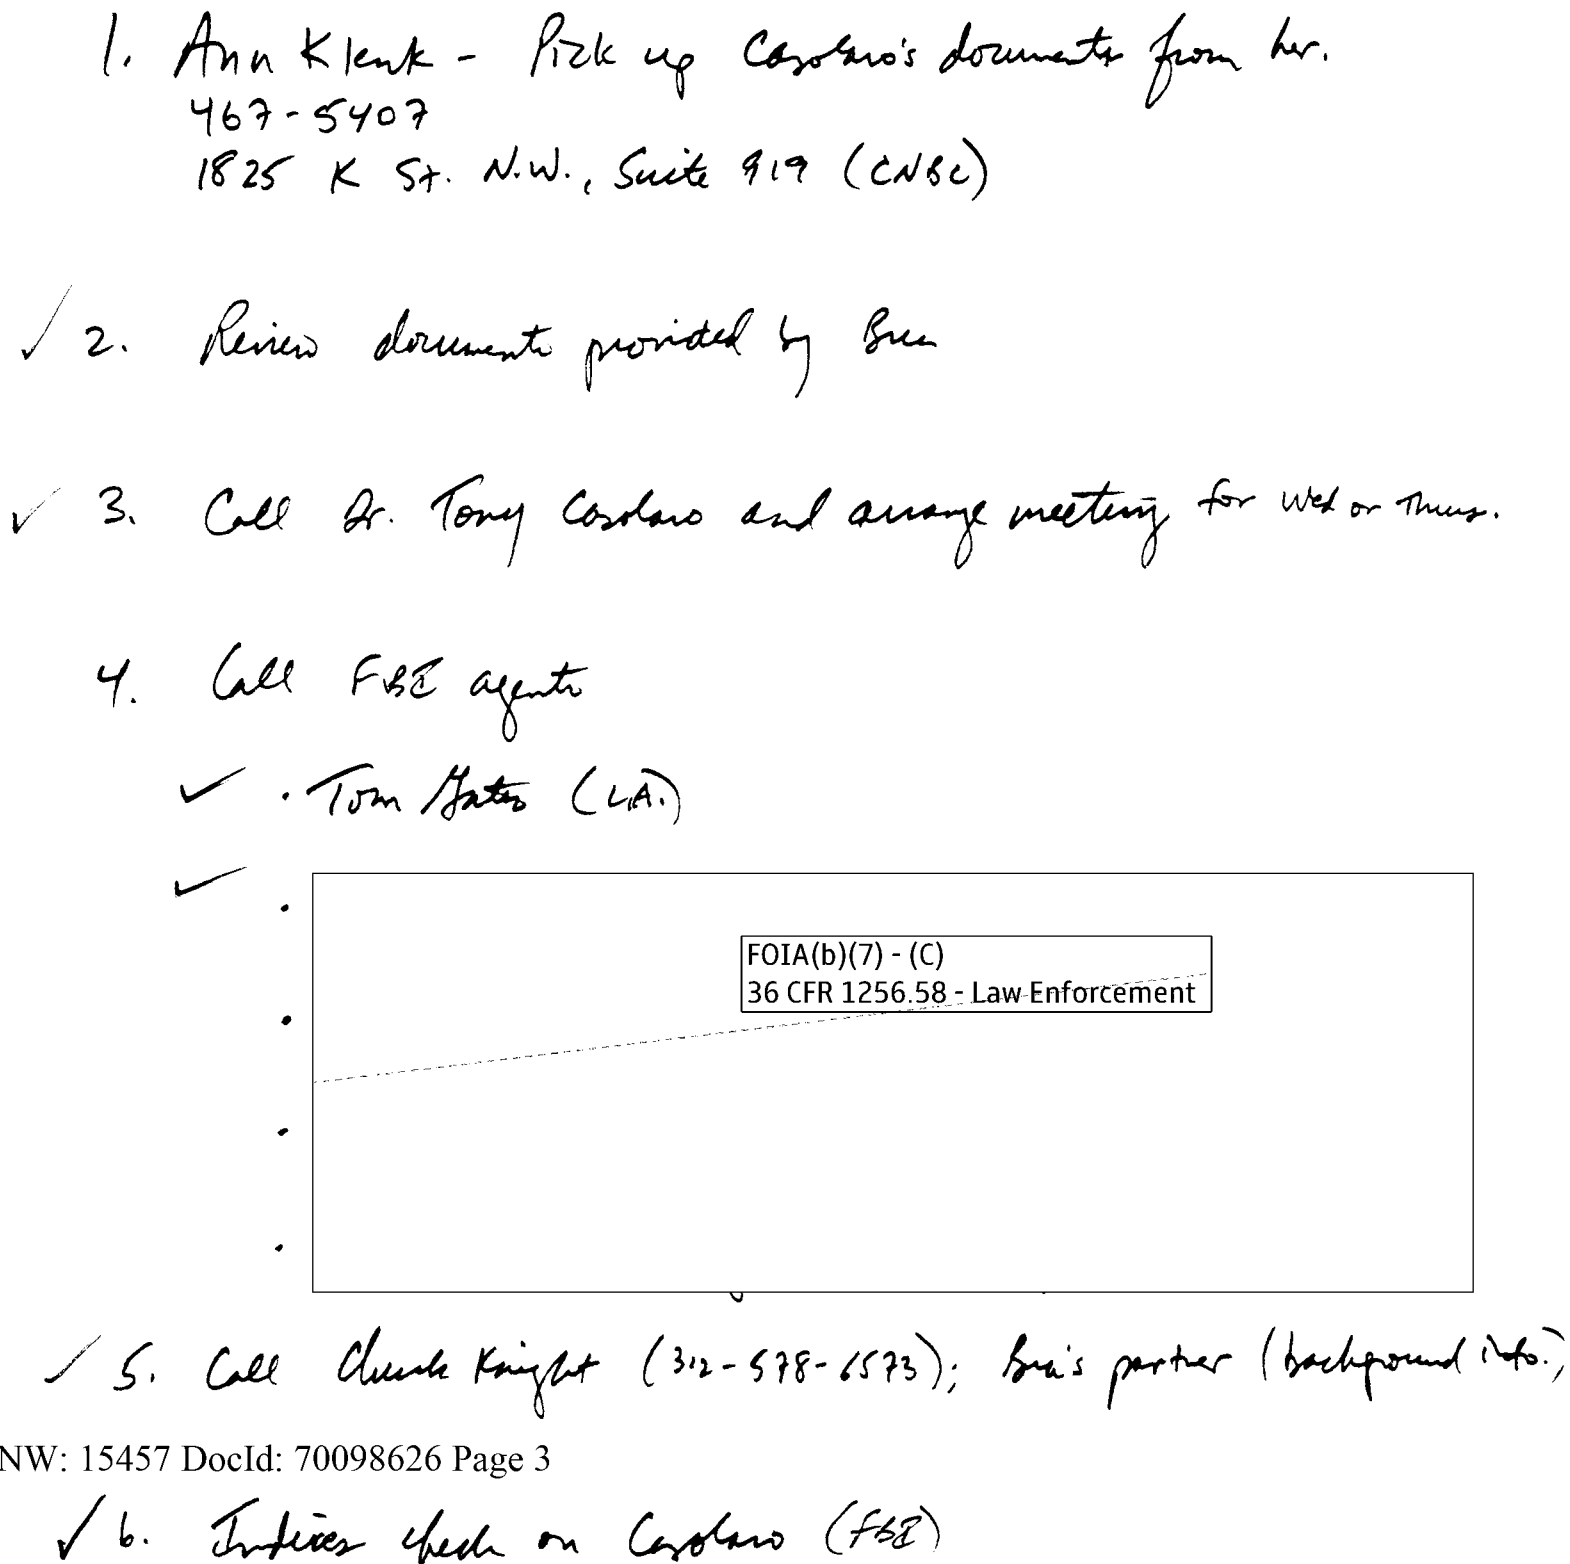 1. Ann Klenk - Pick up Casolaro's documents from her.
467-5407
1825 K St. N.W., Suite 919 (CNBC)
✓ 2. Review documents provided by Bua
✓ 3. Call Dr. Tony Casolaro and arrange meeting for Wed or Thurs.
4. Call FBI agents
✓ • Tom Gates (L.A.)
✓ •
FOIA(b)(7) - (C)
36 CFR 1256.58 - Law Enforcement
•
•
•
✓ 5. Call Chuck Knight (312-578-6573); Bua's partner (background info.)
NW: 15457 DocId: 70098626 Page 3
✓ 6. Indices check on Casolaro (FBI)